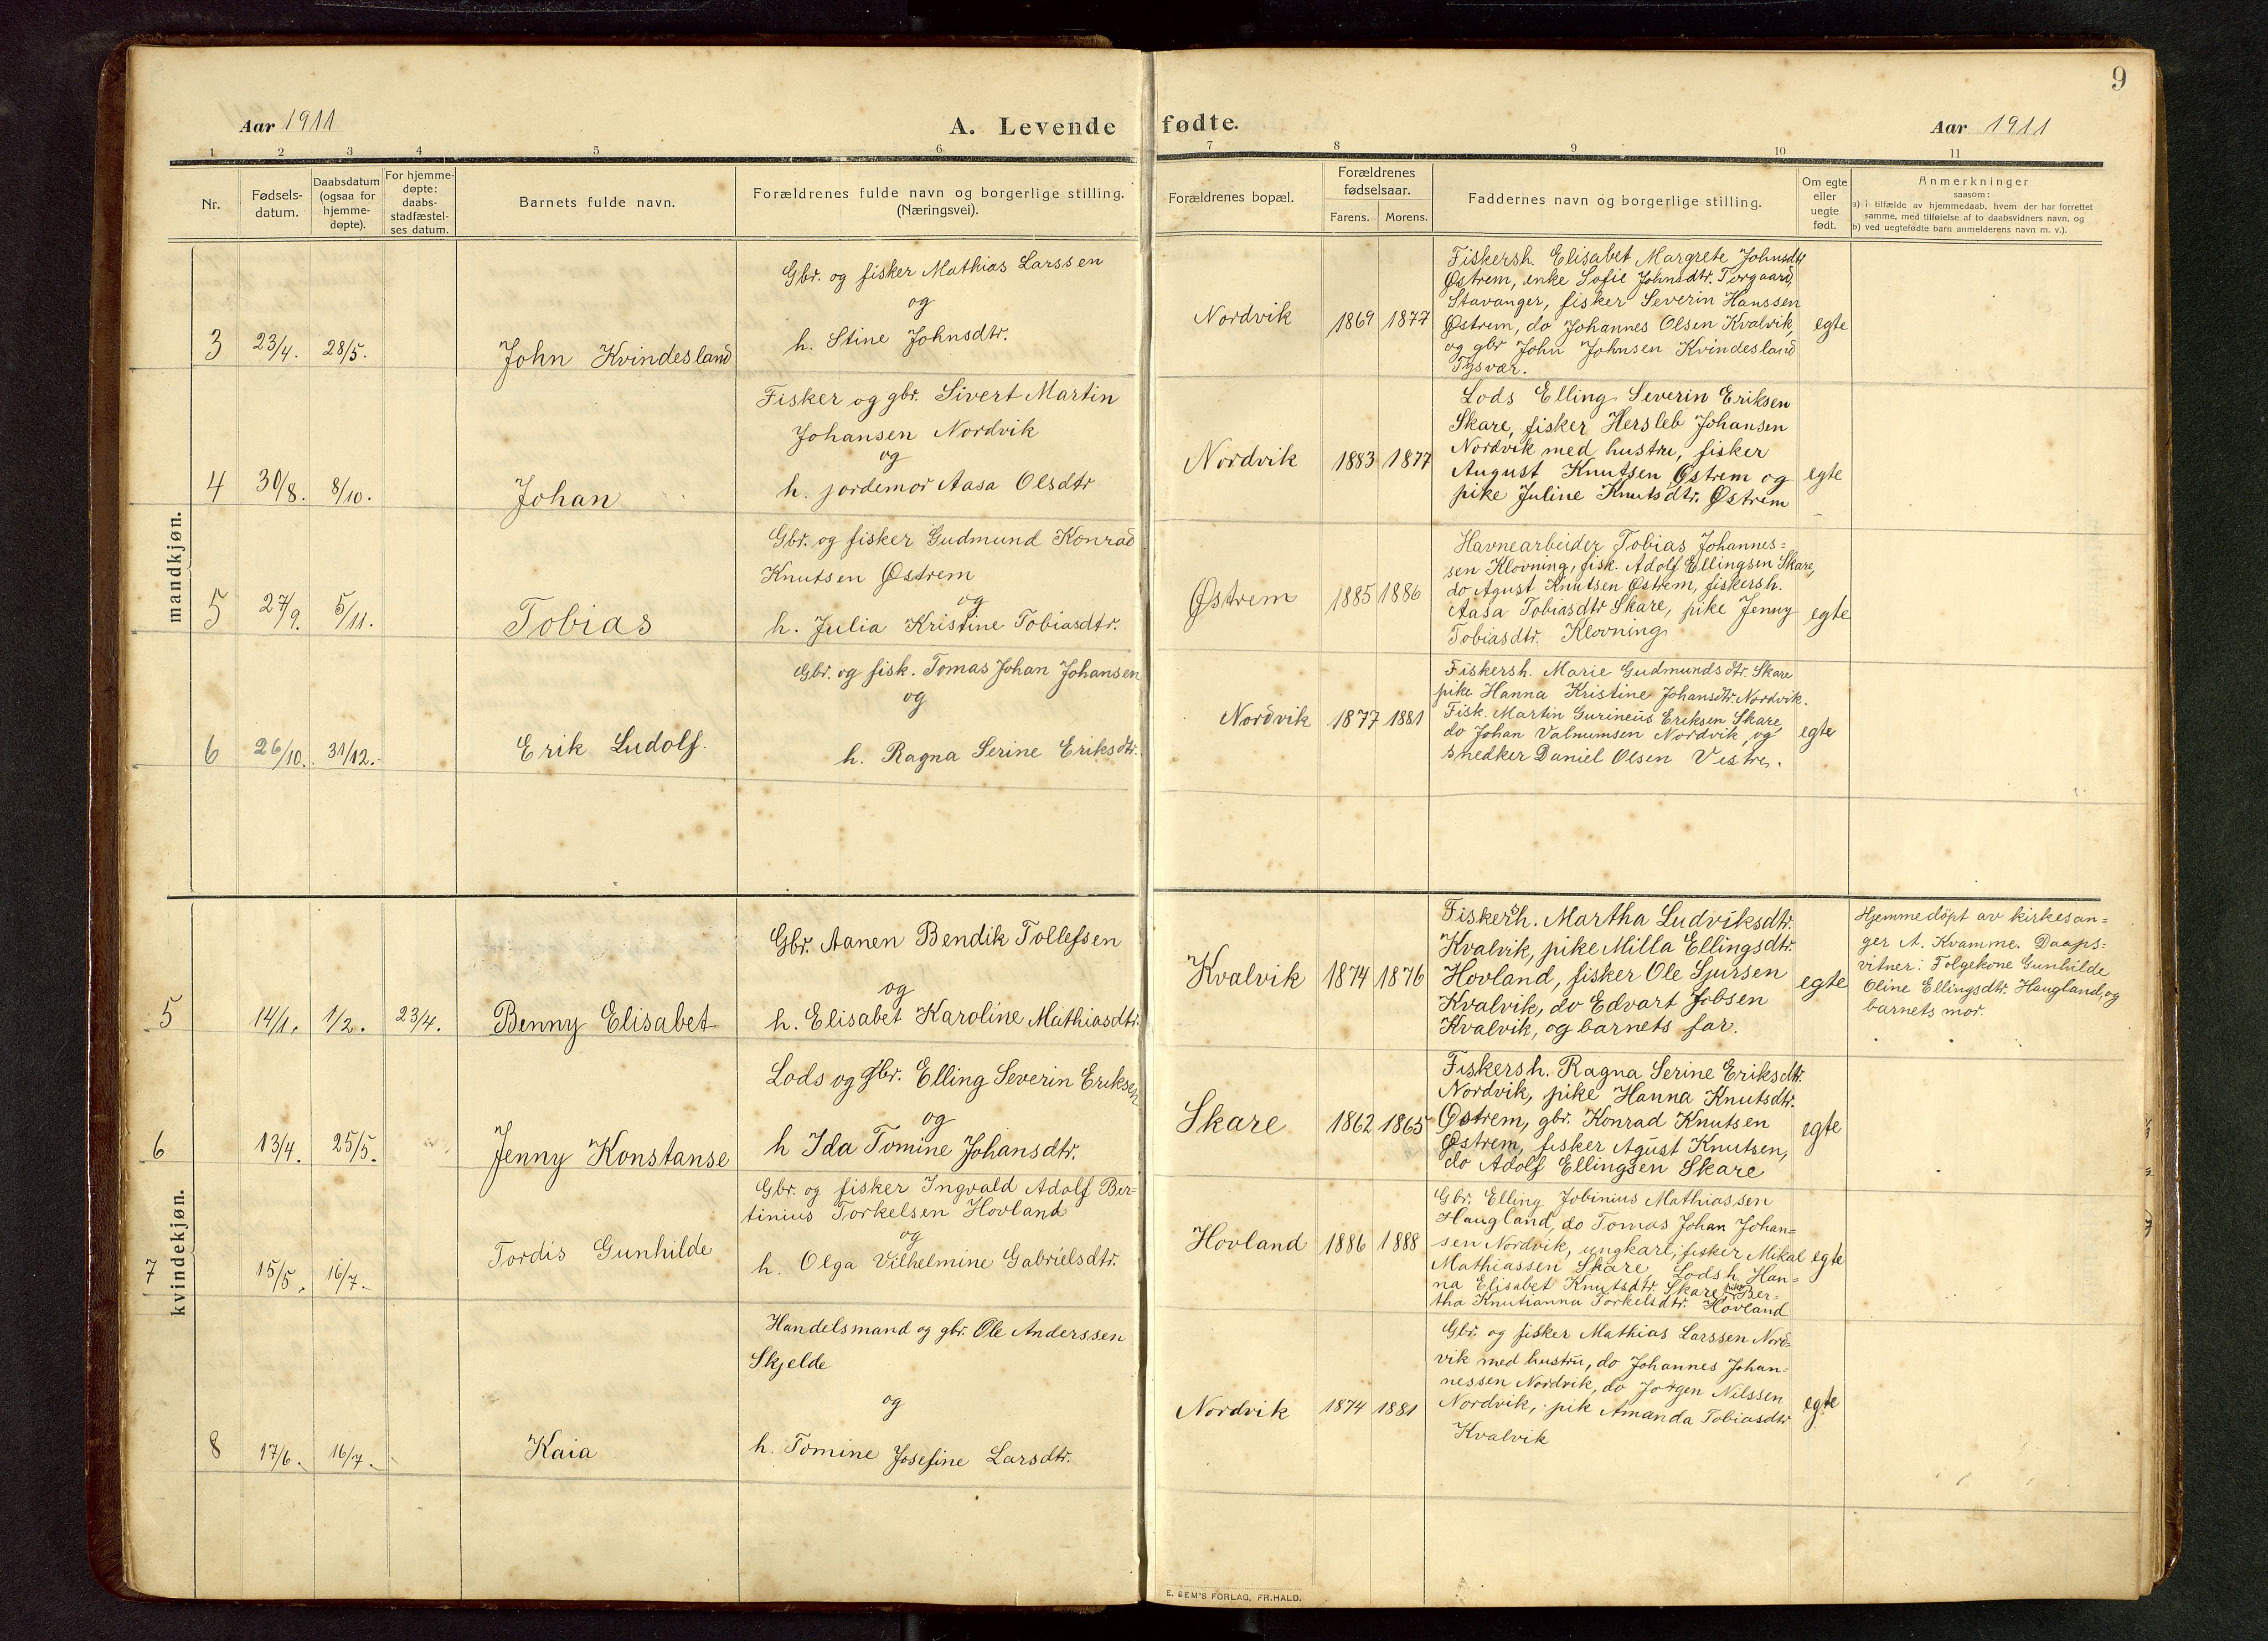 9
Aar 1911
A. Levende fødte.
Aar 1911
1 2 3 4 5 6 7 8 9 10 11
Nr.
Fødsels-
datum.
Daabsdatum
(ogsaa for
hjemme-
døpte).
For hjemme-
døpte:
daabs-
stadfæstel-
ses datum.
Barnets fulde navn.
Forældrenes fulde navn og borgerlige stilling.
(Næringsvei).
Forældrenes bopæl.
Forældrenes
fødselsaar.
Farens. Morens.
Faddernes navn og borgerlige stilling.
Om egte
eller
uegte
født.
Anmerkninger
saasom:
a) i tilfælde av hjemmedaab, hvem der har forrettet
samme, med tilføielse af to daabsvidners navn, og
b) ved uegtefødte barn anmelderens navn m. v.).
mandkjøn.
3 23/4. 28/5.
John Kvindesland
Gbr. og fisker Mathias Larssen
og
h. Stine Johnsdtr.
Nordvik 1869 1877
Fiskersh. Elisabet Margrete Johnsdtr
Østrem, enke Sofie Johnsdtr. Torgaard,
Stavanger, fisker Severin Hanssen
Østrem, do Johannes Olsen Kvalvik,
og gbr John Johnsen Kvindesland
Tysvær.
egte
4 30/8. 8/10.
Johan
Fisker og gbr. Sivert Martin
Johansen Nordvik
og
h. jordemor Aasa Olsdtr
Nordvik 1883 1877
Lods Elling Severin Eriksen
Skare, fisker Hersleb Johansen
Nordvik med hustru, fisker
August Knutsen Østrem og
pike Juline Knutsdtr. Østrem
egte
5 27/9. 5/11.
Tobias
Gbr. og fisker Gudmund Konrad
Knutsen Østrem
og
h. Julia Kristine Tobiasdtr.
Østrem 1885 1886
Havnearbeider Tobias Johannes=
sen Klovning, fisk. Adolf Ellingsen Skare,
do Agust Knutsen Østrem, fiskersh.
Aasa Tobiasdtr Skare, pike Jenny
Tobiasdtr. Klovning
egte
6 26/10. 31/12.
Erik Ludolf.
Gbr. og fisk. Tomas Johan Johansen
og
h. Ragna Serine Eriksdtr.
Nordvik 1877 1881
Fiskersh. Marie Gudmundsdtr. Skare
pike Hanna Kristine Johansdtr. Nordvik.
Fisk. Martin Gurineus Eriksen Skare,
do Johan Valnumsen Nordvik, og
snedker Daniel Olsen Vestre.
egte
kvindekjøn.
5 14/1. 1/2. 23/4.
Benny Elisabet
Gbr. Aanen Bendik Tollefsen
og
h. Elisabet Karoline Mathiasdtr.
Kvalvik 1874 1876
Fiskersh. Martha Ludviksdtr.
Kvalvik, pike Milla Ellingsdtr.
Hovland, fisker Ole Sjursen
Kvalvik, do Edvart Jobsen
Kvalvik, og barnets far.
egte
Hjemmedöpt av kirkesan=
ger A. Kvamme. Daaps=
vitner: Følgekone Gunhilde
Oline Ellingsdtr. Haugland, og
barnets mor.
6 13/4. 25/5.
Jenny Konstanse
Lods og gbr. Elling Severin Eriksen
og
h Ida Tomine Johansdtr.
Skare 1862 1865
Fiskersh. Ragna Serine Eriksdtr.
Nordvik, pike Hanna Knutsdtr.
Østrem, gbr. Konrad Knutsen
Østrem, fisker Agust Knutsen,
do Adolf Ellingsen Skare
egte
7 15/5. 16/7.
Tordis Gunhilde
Gbr. og fisker Ingvald Adolf Ber=
tinius Torkelsen Hovland
og
h. Olga Vilhelmine Gabrielsdtr.
Hovland 1886 1888
Gbr. Elling Jobinius Mathiassen
Haugland, do Tomas Johan Johan=
sen Nordvik, ungkarl, fisker Mikal
Mathiassen Skare, Lodsh. Han=
na Elisabet Knutsdtr. Skare, pike Ber=
tha Knutianna Torkelsdtr. Hovland
egte
8 17/6. 16/7.
Kaia
Handelsmand og gbr. Ole Anderssen
Skjelde
og
h. Tomine Josefine Larsdtr.
Nordvik 1874 1881
Gbr. og fisker Mathias Larssen Nord=
vik med hustru, do Johannes Johan=
nessen Nordvik, do Jørgen Nilssen
Nordvik, pik Amanda Tobiasdtr
Kvalvik
egte
E. SEM'S FORLAG, FR.HALD.